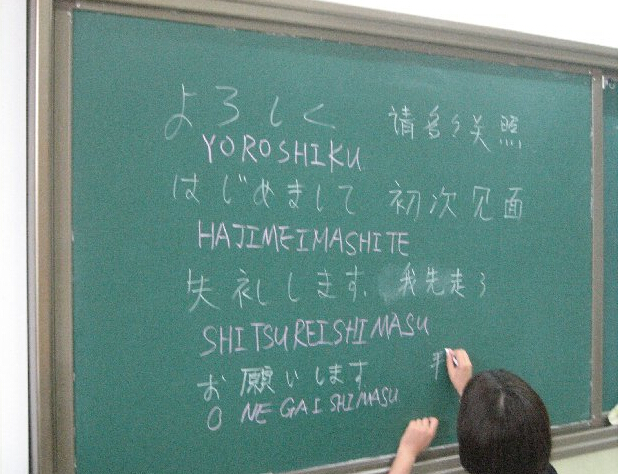 よろしく 请多多关照
YOROSHIKU
はじめまして 初次见面
HAJIMEIMASHITE
失礼します. 我先走了
SHITSUREISHIMASU
お願いします
O NEGAISHIMASU